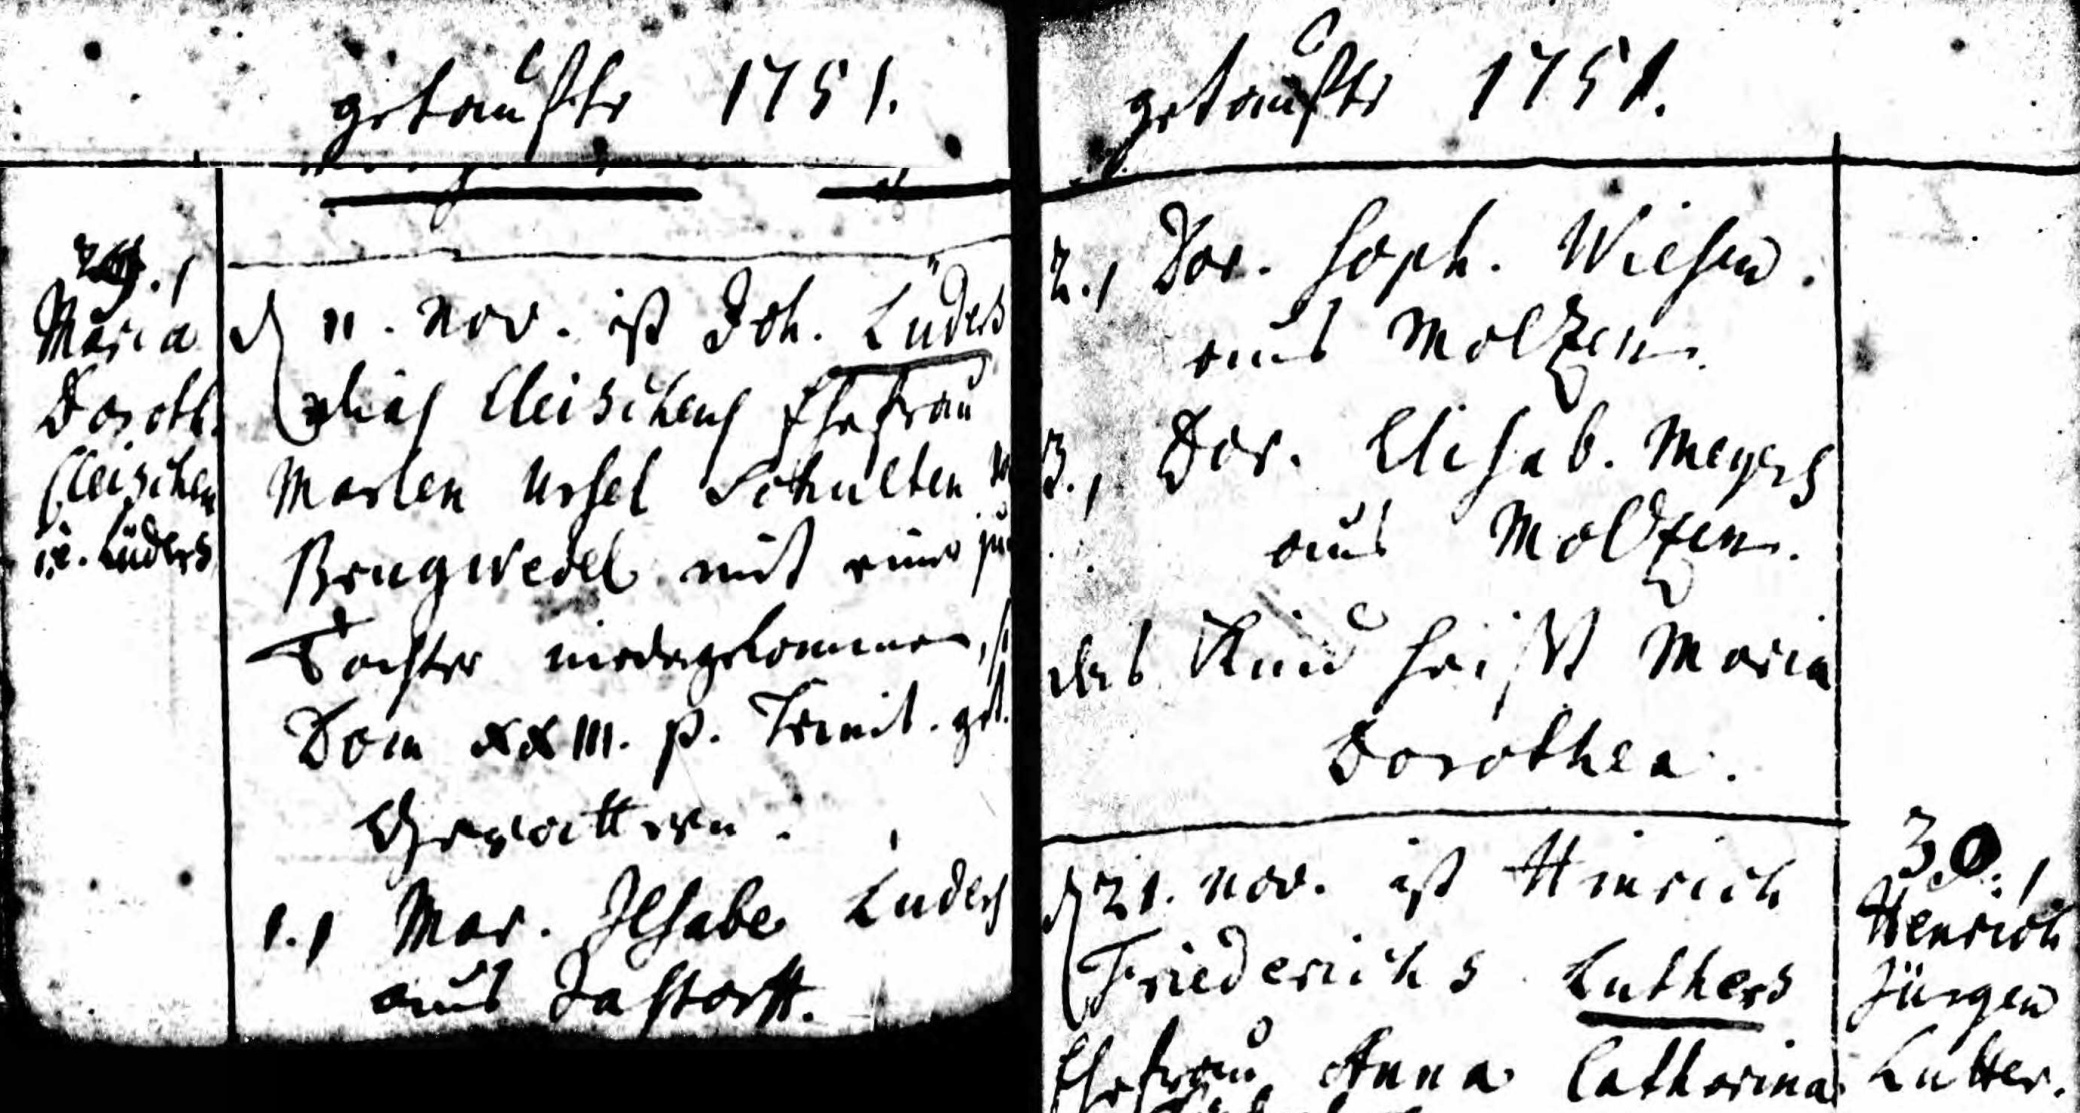 getauffte 1751.
29.,
Maria
Doroth.
Cleischen
i.e. Lüders
d 11. Nov. ist Joh. Lüders
alias Cleischens Ehefrau
Marlen Ursel Schulten
Brugwedel mit einer
Tochter niedergekommen,
Dom XXIII. p. Trinit. get.
Gevattern.
1., Mar. Ilsabe Luders
aus Jastorff.
getauffte 1751.
2., Dor. Soph. Wiesen.
aus Molzen.
3., Dor. Elisab. Meyers
aus Molzen.
das Kind heißt Maria
Dorothea.
d 21. Nov. ist Hinrich
Friederichs Luthers
Ehefrau Anna Catharina
30.,
Henrich
Jürgen
Lutter.